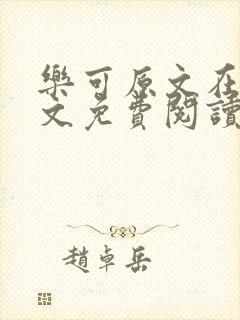 樂可原文在
文免費閱讀
趙卓岳